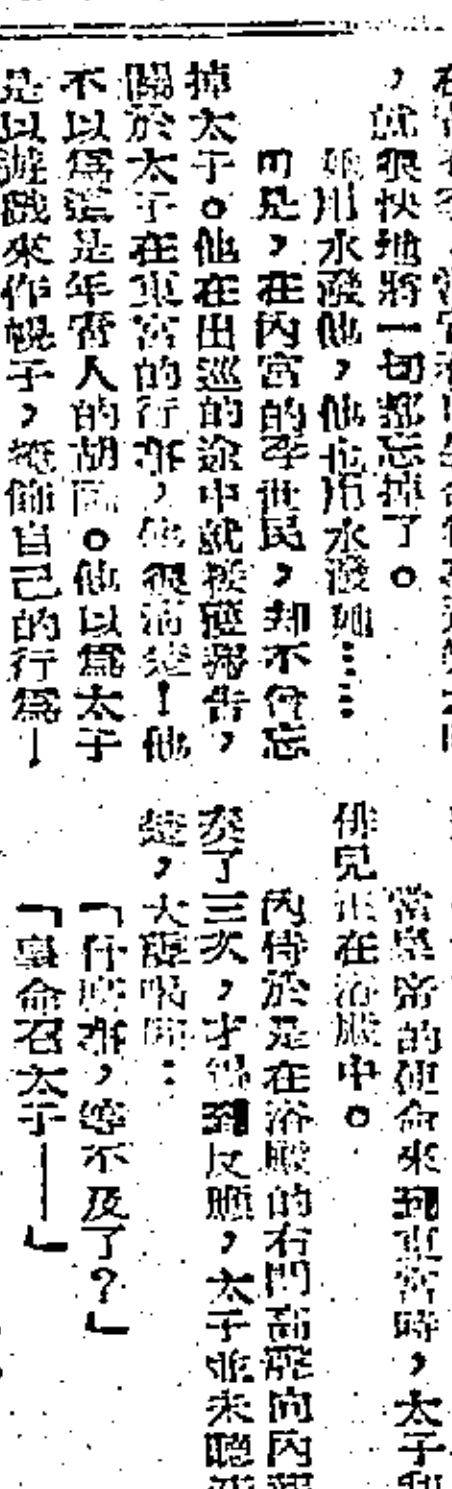 ，就很快地將一切都忘掉了。
她用水潑他，他也用水潑她……
可是，在內宮的李世民，却不曾忘
掉太子。他在出巡的途中就接獲報告，
關於太子在東宮的行為，他很清楚！他
不以為這是年青人的胡鬧。他以為太子
是以遊戲來作幌子，掩飾自己的行為—
當皇帝的使命來到東宮時，太子和
俳兒正在浴殿中。
內侍於是在浴殿的右門高聲向內
奏了三次，才得到反應，太子並未聽
楚，大聲喝問：
「什麼事，等不及了？」
「皇命召太子——」